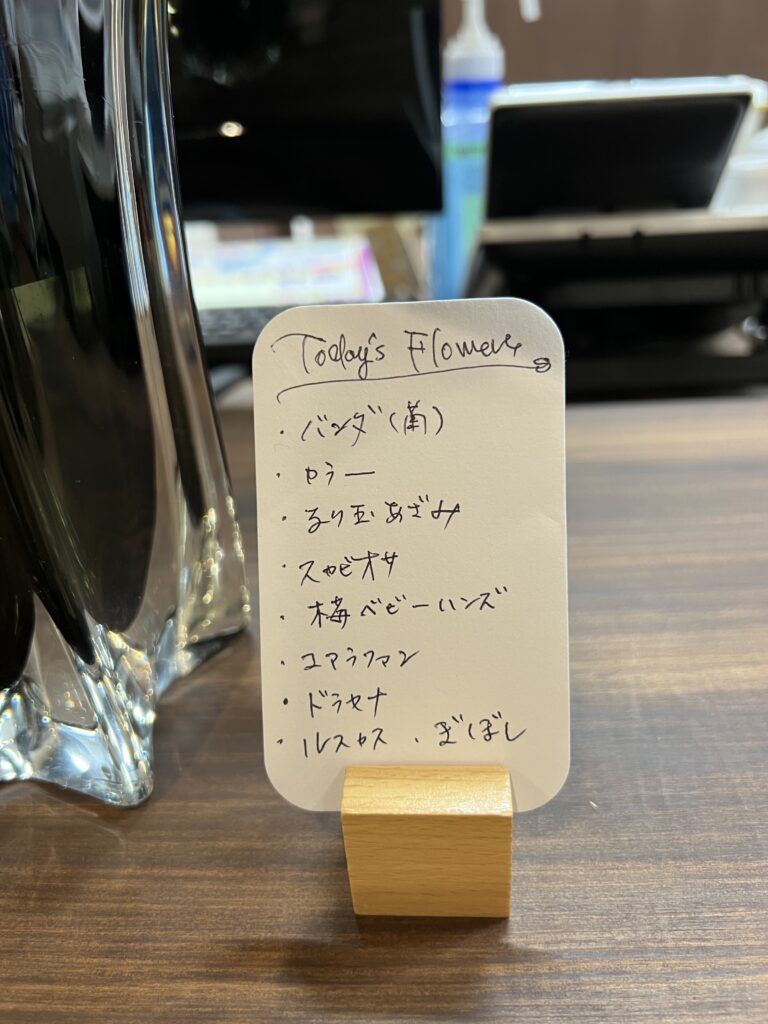 Today's Flowers
・バンダ(蘭)
・カラー
・るり玉あざみ
・スカビオサ
・梅ベビーハンズ
・コアラファン
・ドラセナ
・ルスカス ・ぎぼし